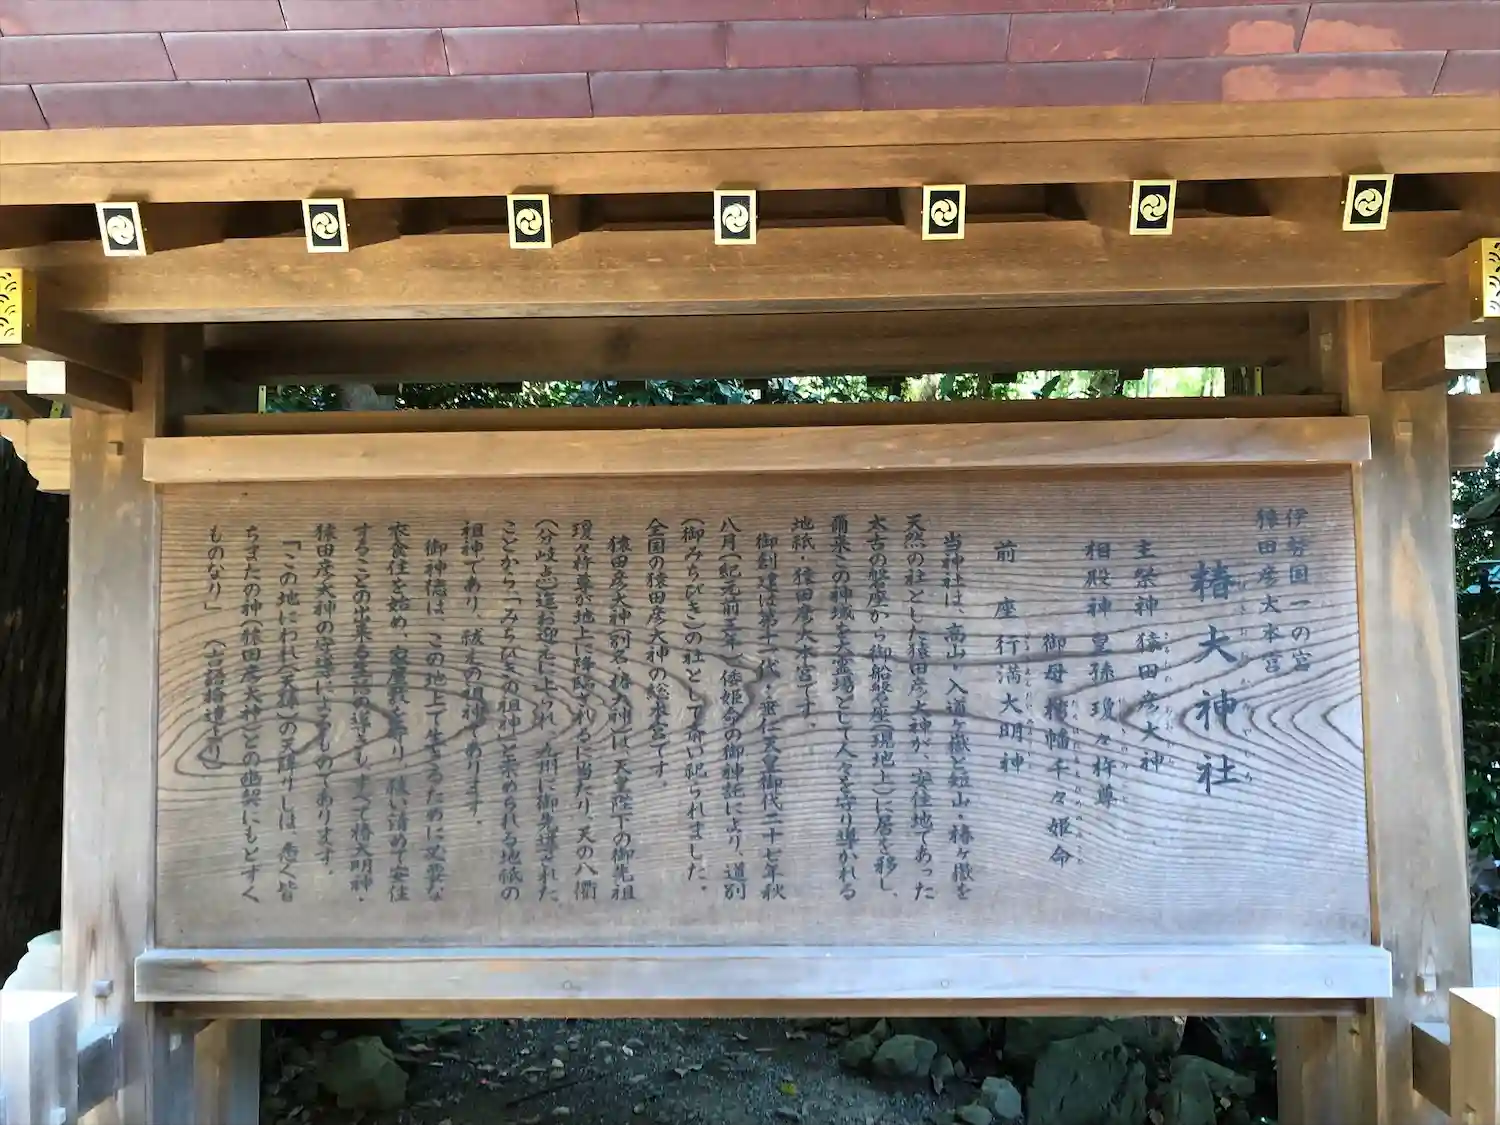 伊勢国一の宮
猿田彦大本宮
椿大神社
主祭神 猿田彦大神
相殿神 皇孫 瓊々杵尊
御母 栲幡千々姫命
前座 行満大明神
当神社は、高山・入道ヶ嶽と短山・椿ヶ嶽を
天然の社とした猿田彦大神が、安住地であった
太古の磐座から御船磐座(現地上)に居を移し、
爾来この神域を大霊場として人々を守り導かれる
地祇・猿田彦大本宮です。
御創建は第十一代・垂仁天皇御代二十七年秋
八月(紀元前三年)倭姫命の御神託により、道別
(御みちびき)の社として斎い祀られました。
全国の猿田彦大神の総本宮です。
猿田彦大神(別名・椿大神)は、天皇陛下の御先祖
瓊々杵尊が地上に降臨されるに当たり、天の八衢
(分岐点)迄お迎えに上られ、九州に御先導された
ことから「みちびきの祖神」と崇められる地祇の
祖神であり、祓之の祖神であります。
御神徳は、この地上で生きるために必要な
衣食住を始め、家屋敷を守り、祓い清めて安住
することの出来る生活の導きも、すべて椿大明神・
猿田彦大神の守導によるものであります。
「この地にわれ(天孫)の天降りしは、悉く皆
ちまたの神(猿田彦大神)との幽契にもとずく
ものなり」